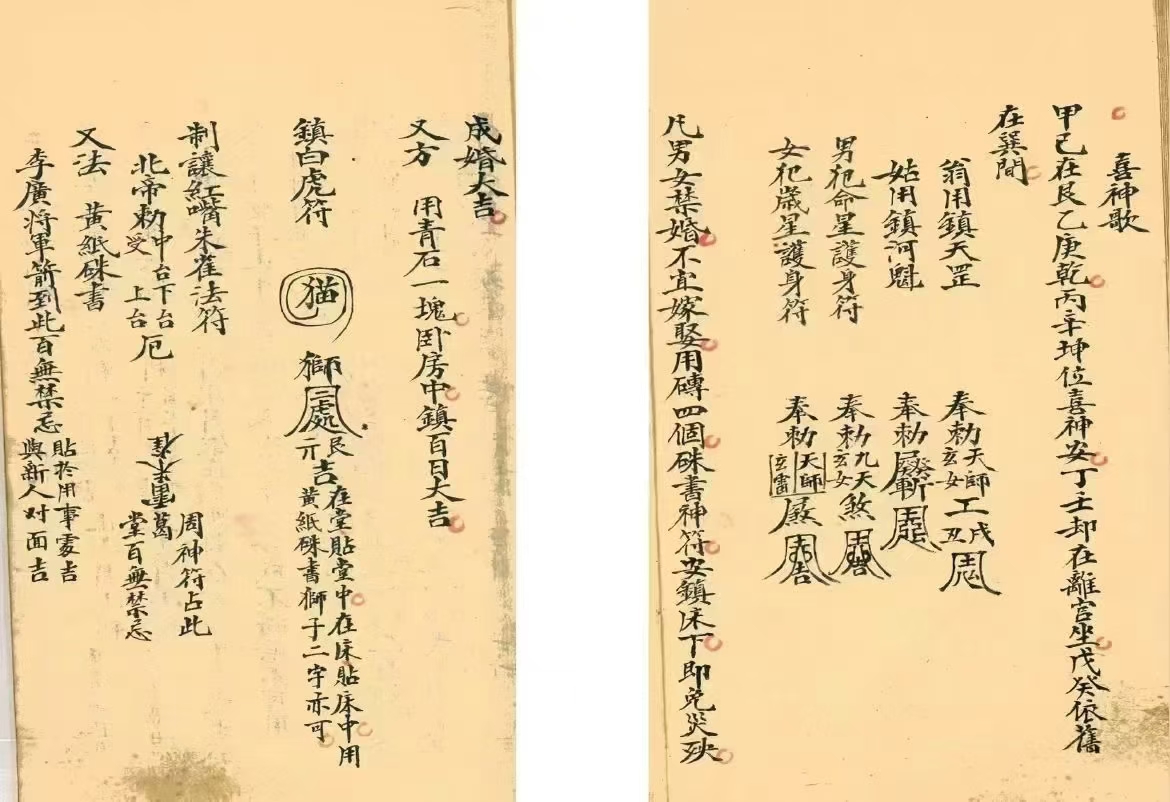 喜神歌
甲己在艮乙庚乾丙辛坤位喜神安丁壬却在離宫坐戊癸依舊
在巽間
翁用鎮天罡 奉勅天師玄女工戌丑
姑用鎮河魁 奉勅
男犯命星護身符 奉勅九天玄女煞
女犯歲星護身符 奉勅天師玄雷煞
凡男女禁婚不宜嫁娶用磚四個硃書神符安鎮床下即免災殃
成婚大吉
又方 用青石一塊卧房中鎮百日大吉
鎮白虎符 猫 獅三處艮亓吉在堂貼堂中在床貼床中用
黄紙硃書獅子二字亦可
制讓紅嘴朱雀法符
北帝勅受中台下台上台厄 周神符占此
堂百無禁忌
又法 黄紙硃書
李廣將軍箭到此百無禁忌 貼於用事處吉
與新人对面吉